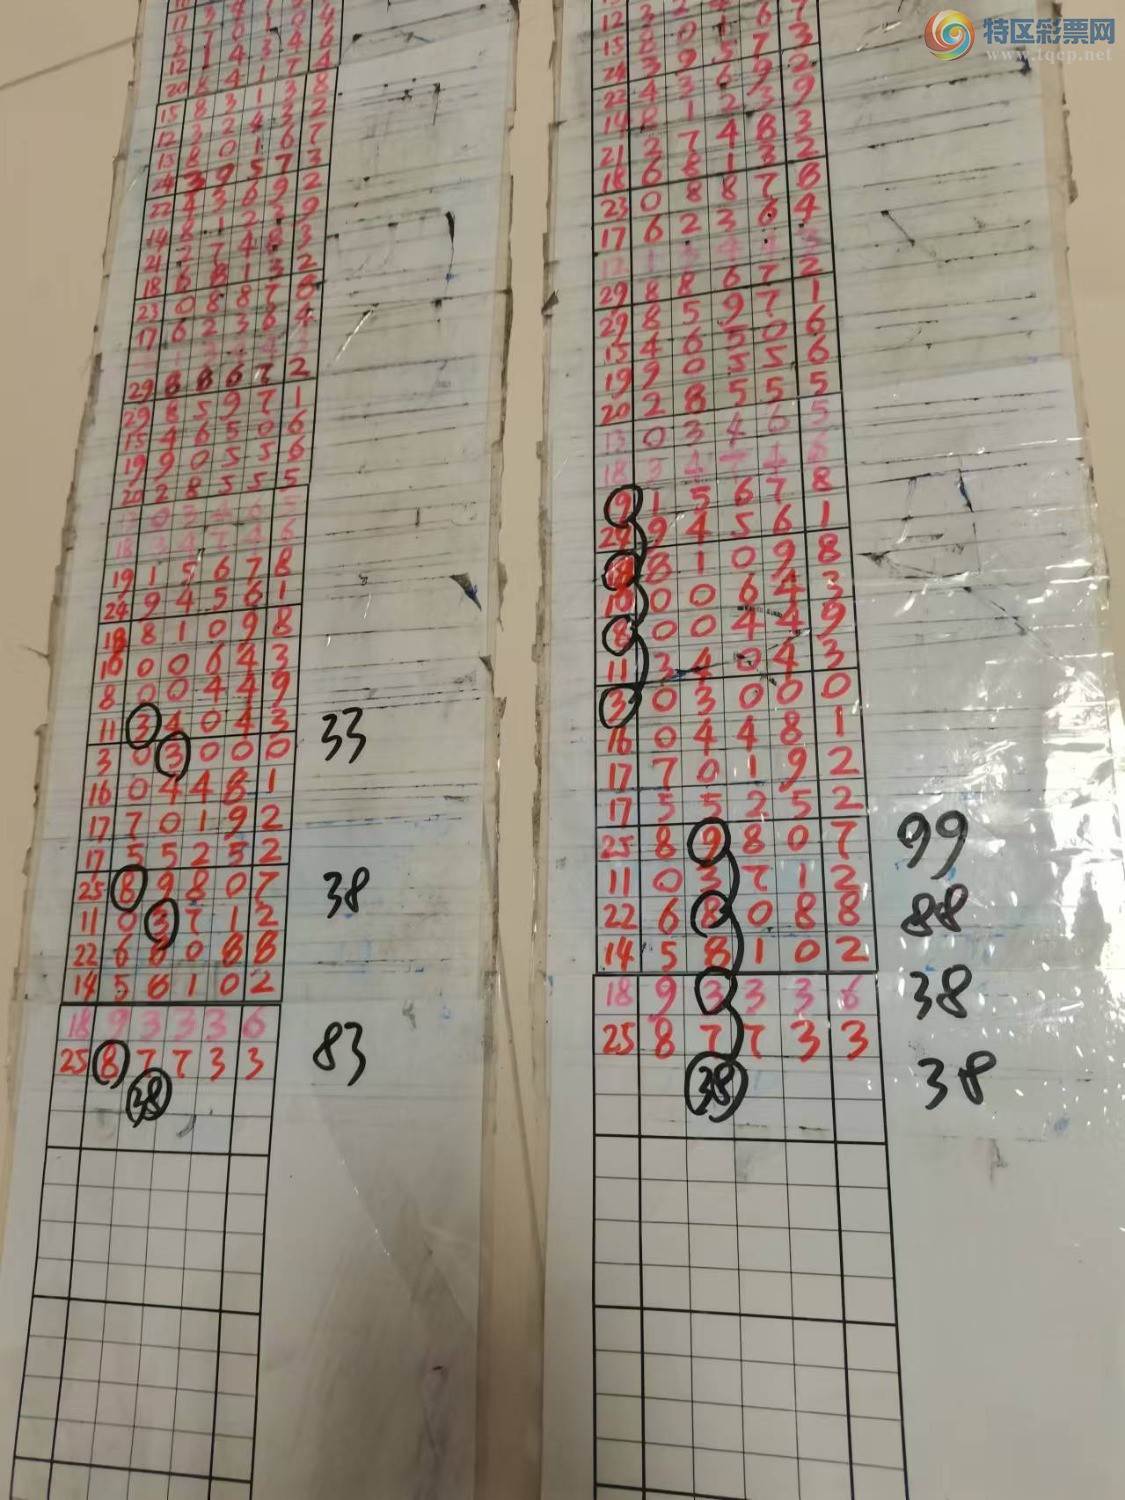 特区彩票网
www.tqcp.net
15 8 3 1 3 2
12 3 2 4 3 7
15 8 0 1 6 7
24 3 9 5 7 3
22 4 3 6 9 2
14 8 1 2 3 9
21 2 7 4 8 3
18 6 8 1 3 2
23 0 8 8 7 8
17 6 2 3 6 4
29 8 8 6 7 2
29 8 5 9 7 1
15 4 6 5 0 6
19 9 0 5 5 6
20 2 8 5 5 5
13 0 3 4 6 5
18 3 4 7 4 6
19 1 5 6 7 8
24 9 4 5 6 1
18 8 1 0 9 8
10 0 0 6 4 3
8 0 0 4 4 9
11 3 4 0 4 3 33
3 0 3 0 0 0
16 0 4 4 8 1
17 7 0 1 9 2
17 5 5 2 5 2
25 8 9 8 0 7 38
11 0 3 7 1 2
22 6 8 0 8 8
14 5 8 1 0 2
18 9 3 3 3 6
25 8 7 7 3 3 83
38
22 4 3 6 9 2
14 8 1 2 3 9
21 2 7 4 8 3
18 6 8 1 3 2
23 0 8 8 7 8
17 6 2 3 6 4
12 1 3 4 4
29 8 8 6 7 2
29 8 5 9 7 1
15 4 6 5 0 6
19 9 0 5 5 6
20 2 8 5 5 5
13 0 3 4 6 5
18 3 4 7 4 6
9 1 5 6 7 8
24 9 4 5 6 1
18 8 1 0 9 8
10 0 0 6 4 3
8 0 0 4 4 9
11 3 4 0 4 3
3 0 3 0 0 0
16 0 4 4 8 1
17 7 0 1 9 2
17 5 5 2 5 2
25 8 9 8 0 7 99
11 0 3 7 1 2
22 6 8 0 8 8 88
14 5 8 1 0 2
18 9 3 3 3 6 38
25 8 7 7 3 3
38 38